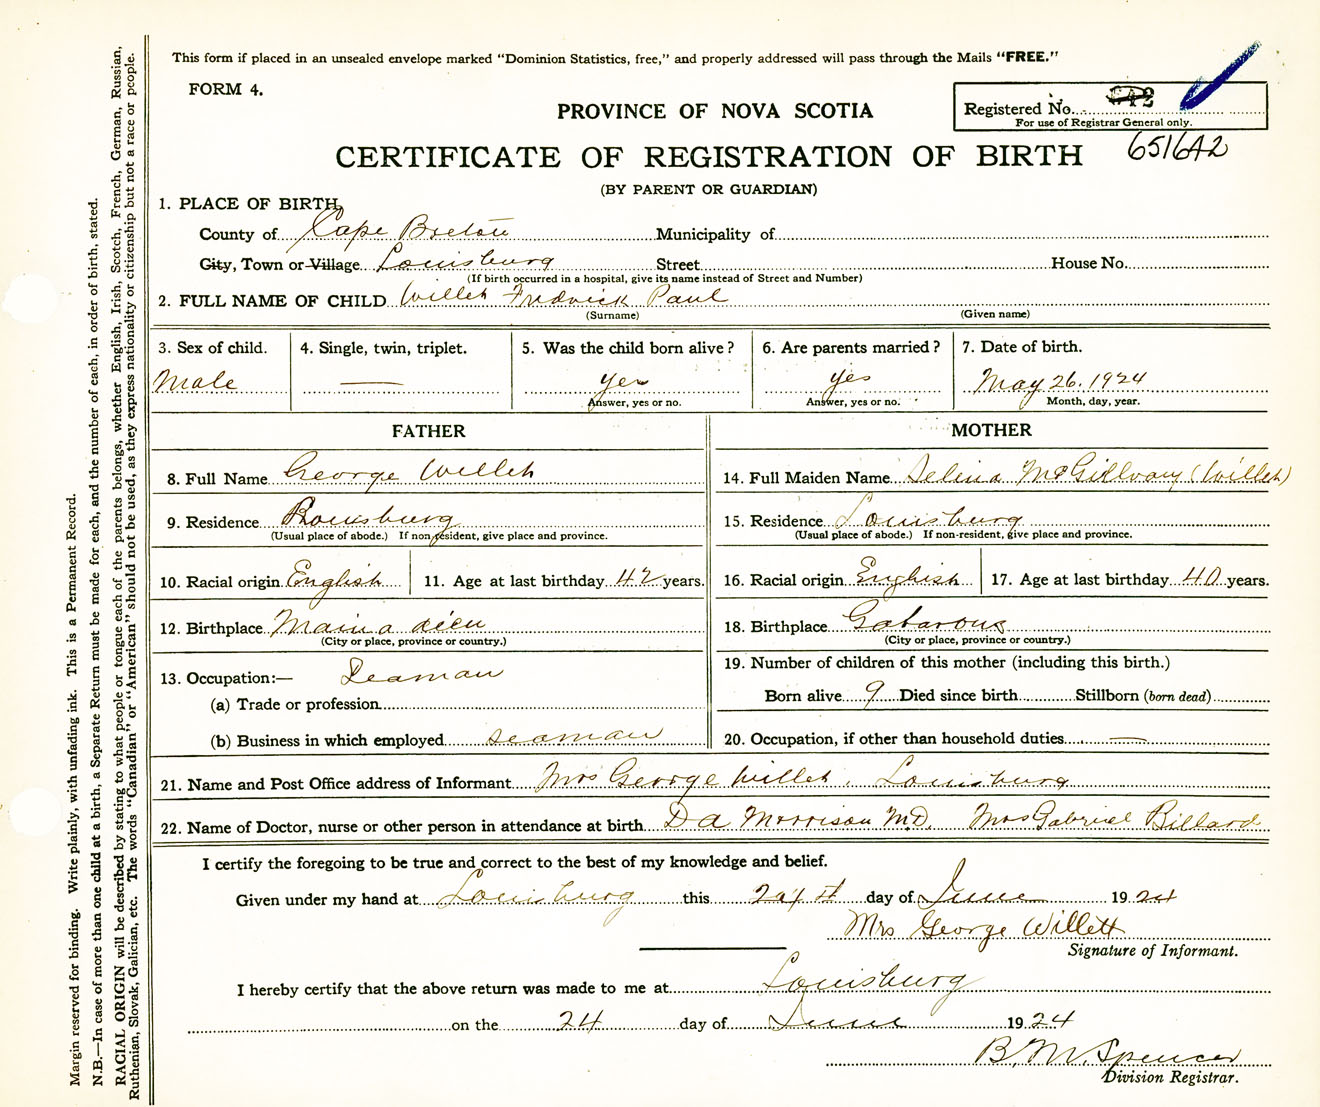 This form if placed in an unsealed envelope marked "Dominion Statistics, free," and properly addressed will pass through the Mails "FREE."
FORM 4.
PROVINCE OF NOVA SCOTIA
Registered No.
For use of Registrar General only.
CERTIFICATE OF REGISTRATION OF BIRTH
651642
(BY PARENT OR GUARDIAN)
1. PLACE OF BIRTH,
County of Cape Breton Municipality of
City, Town or Village Louisburg Street House No.
(If birth occurred in a hospital, give its name instead of Street and Number)
2. FULL NAME OF CHILD Willet Fredrick Paul
(Surname) (Given name)
3. Sex of child. 4. Single, twin, triplet. 5. Was the child born alive? 6. Are parents married? 7. Date of birth.
Male — yes yes May 26. 1924
Answer, yes or no. Answer, yes or no. Month, day, year.
FATHER MOTHER
8. Full Name George Willet 14. Full Maiden Name Selina McGillvary (Willet)
9. Residence Louisburg 15. Residence Louisburg
(Usual place of abode.) If non-resident, give place and province. (Usual place of abode.) If non-resident, give place and province.
10. Racial origin English 11. Age at last birthday 42 years. 16. Racial origin English 17. Age at last birthday 40 years.
12. Birthplace Main a dieu 18. Birthplace Gabarous
(City or place, province or country.) (City or place, province or country.)
13. Occupation:— Seaman 19. Number of children of this mother (including this birth.)
(a) Trade or profession Born alive 9 Died since birth Stillborn (born dead)
(b) Business in which employed seaman 20. Occupation, if other than household duties —
21. Name and Post Office address of Informant Mrs George Willet, Louisburg
22. Name of Doctor, nurse or other person in attendance at birth D a Morrison M.D. Mrs Gabriel Billard
I certify the foregoing to be true and correct to the best of my knowledge and belief.
Given under my hand at Louisburg this day of June 1924
Mrs George Willett
Signature of Informant.
I hereby certify that the above return was made to me at Louisburg
on the 24 day of June 1924
B. M. Spencer
Division Registrar.
Margin reserved for binding. Write plainly, with unfading ink. This is a Permanent Record.
N.B.—In case of more than one child at a birth, a Separate Return must be made for each, and the number of each, in order of birth, stated.
RACIAL ORIGIN will be described by stating to what people or tongue each of the parents belongs, whether English, Irish, Scotch, French, German, Russian,
Ruthenian, Slovak, Galician, etc. The words "Canadian" or "American" should not be used, as they express nationality or citizenship but not a race or people.